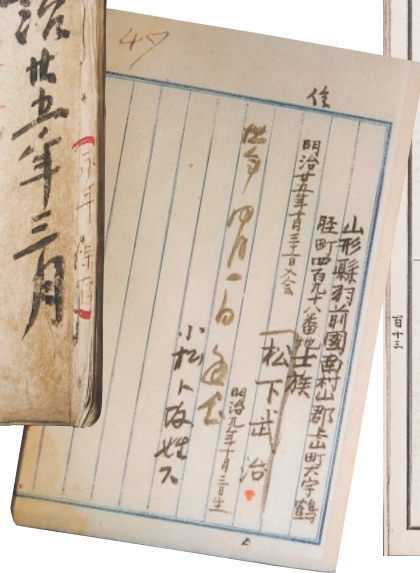 治廿五年三月
永年保存
47
山形縣羽前國南村山郡上山町大字鶴
脛町四百九十八番地士族
明治廿五年十月三十一日入会
松下武治
明治九年十月三日生
小松ト改姓ス
百十三